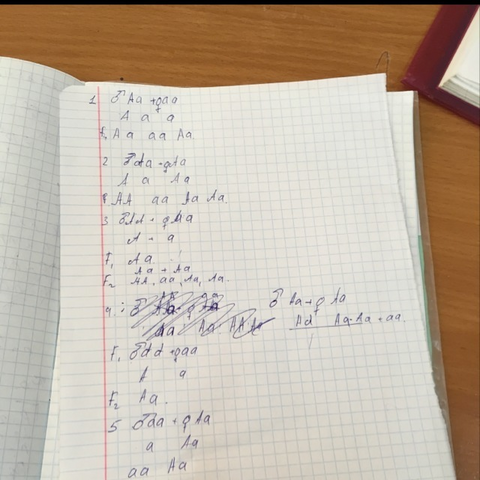 1 ♂ Aa + ♀ aa
A a a
F₁ Aa aa Aa
2. ♂ Aa + ♀ Aa
A a Aa
F₁ AA aa Aa Aa.
3 ♂ AA + ♀
A + a
F₁ Aa
Aa + Aa
F₂ AA, aa, Aa, Aa.
4. ♂ Aa + ♀ Aa
Aa Aa = aa
F₁ ♂ + ♀ aa
A a
F₂ Aa.
5 ♂ aa + ♀ Aa
a Aa
aa Aa